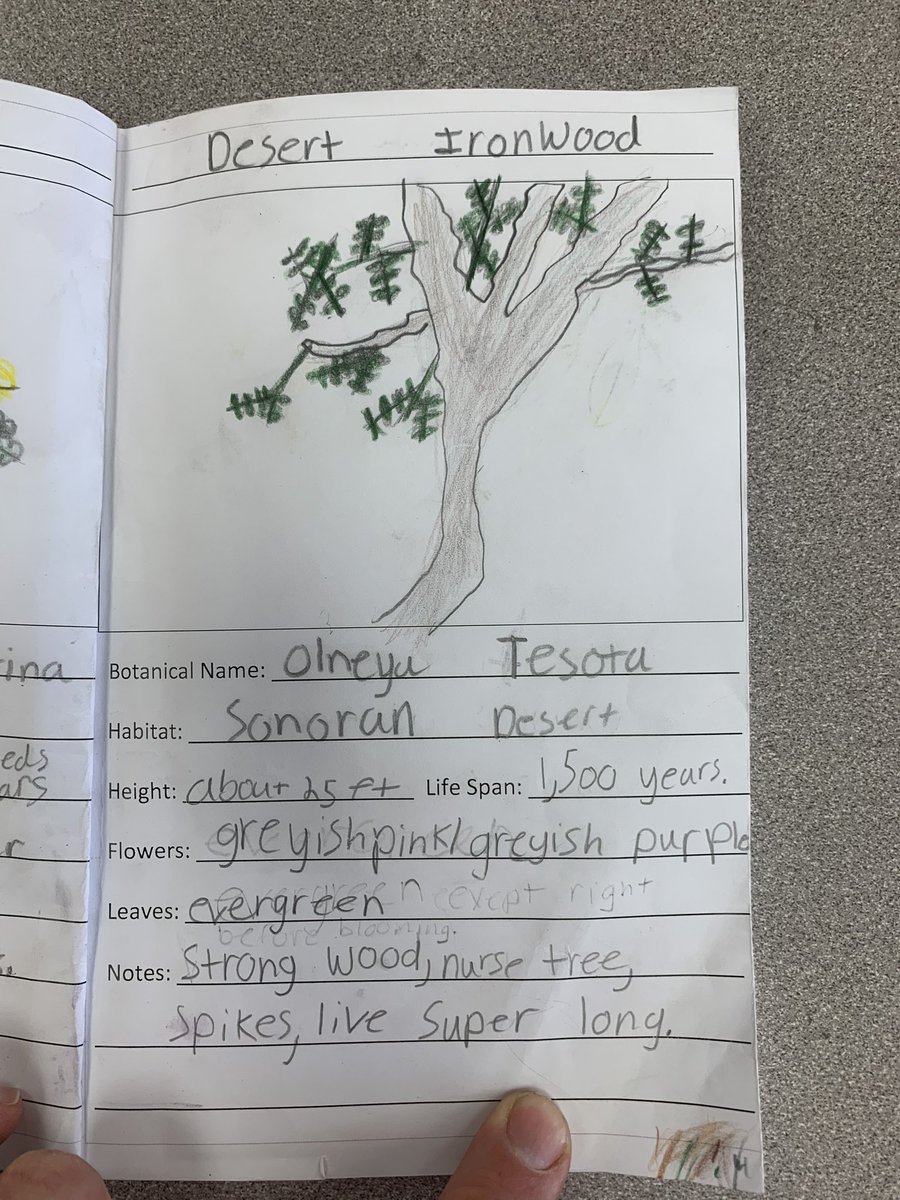 Desert IronWood
ina
Botanical Name: Olneya Tesota
Habitat: Sonoran Desert
eds
ars
Height: about 25 ft Life Span: 1,500 years.
r
Flowers: greyishpink/greyish purple
Leaves: evergreen except right
before blooming.
Notes: Strong wood, nurse tree,
Spikes, live Super long.